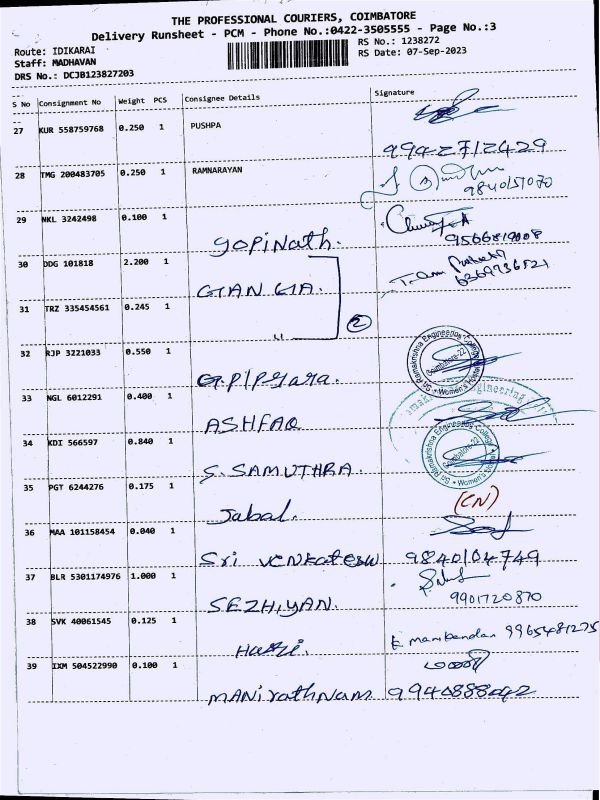 THE PROFESSIONAL COURIERS, COIMBATORE
Delivery Runsheet - PCM - Phone No.:0422-3505555 - Page No.:3
Route: IDIKARAI
RS No.: 1238272
Staff: MADHAVAN
RS Date: 07-Sep-2023
DRS No.: DCJB123827203
S No Consignment No Weight PCS Consignee Details Signature
27 KUR 558759768 0.250 1 PUSHPA
9942712429
28 TMG 200483705 0.250 1 RAMNARAYAN
9840157070
29 NKL 3242498 0.100 1
gopinath.
30 DDG 101818 2.200 1
GIAN GIA.
31 TRZ 335454561 0.245 1
2
32 RJP 3221033 0.550 1
Sri Ramakrishna Engineering College
Coimbatore-22
Women's Hostel
33 NGL 6012291 0.400 1
ASHFAQ
34 KDI 566597 0.840 1
Sri Ramakrishna Engineering College
Coimbatore-22
Women's Hostel
S. SAMUTHRA.
35 PGT 6244276 0.175 1
(CN)
Jabal.
36 MAA 101158454 0.040 1
Sri venkatesw 9840104749
37 BLR 5301174976 1.000 1
9901720870
SEZHIYAN.
38 SVK 40061545 0.125 1
9965481275
Hari.
39 IXM 504522990 0.100 1
MANirathnam 9940888042